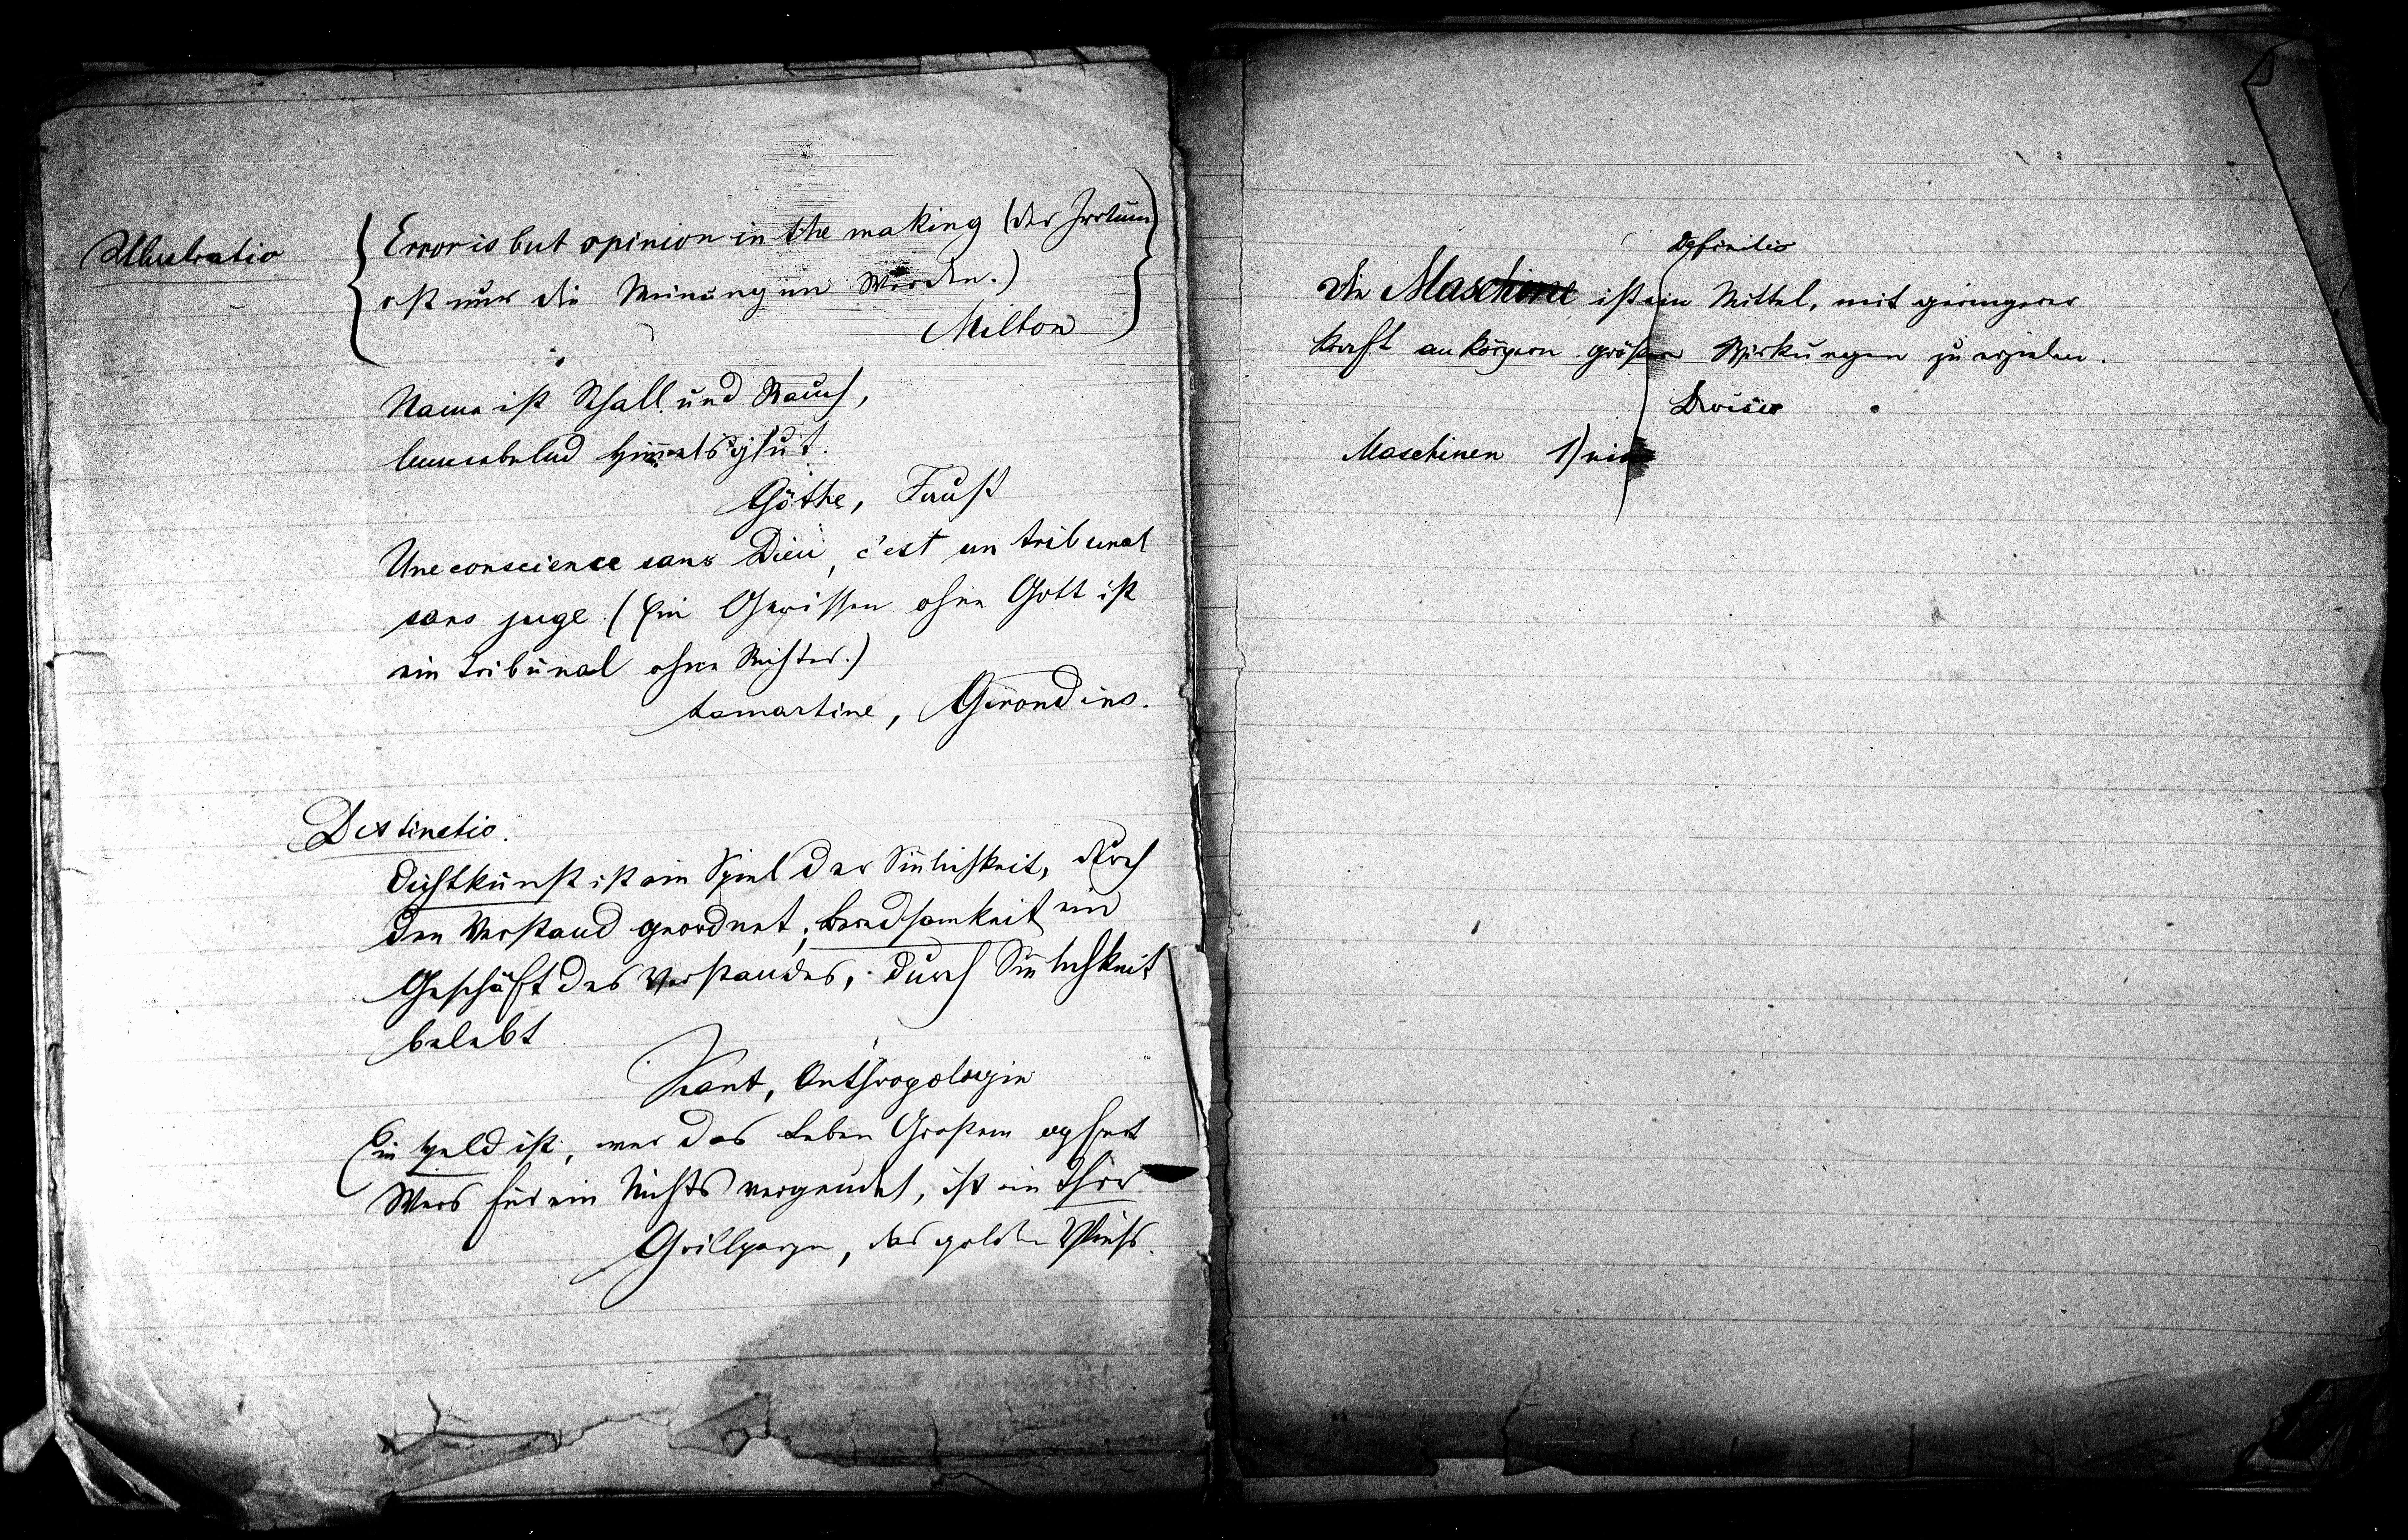 Illustratio
Error is but opinion in the making (der Irrtum
ist nur die Meinung im Werden.)
Milton
Name ist Schall und Rauch,
umnebelnd Himmelsglut.
Göthe, Faust
Une conscience sans Dieu, c'est un tribunal
sans juge (Ein Gewissen ohne Gott ist
ein Tribunal ohne Richter.)
Lamartine, Girondins.
Distinctio.
Dichtkunst ist ein Spiel der Sinlichkeit, durch
den Verstand geordnet; Beredsamkeit ein
Geschäft des Verstandes, durch Sinlichkeit
belebt
Kant, Anthropologie
Ein Held ist, wer das Leben Großem opfert
Wers für ein Nichts vergeudet, ist ein Thor
Grillparzer, das goldne Vließ.
Definitio
Die Maschine ist ein Mittel, mit geringerer
Kraft an Körpern größere Wirkungen zu erzielen.
Divisio
Maschinen 1)